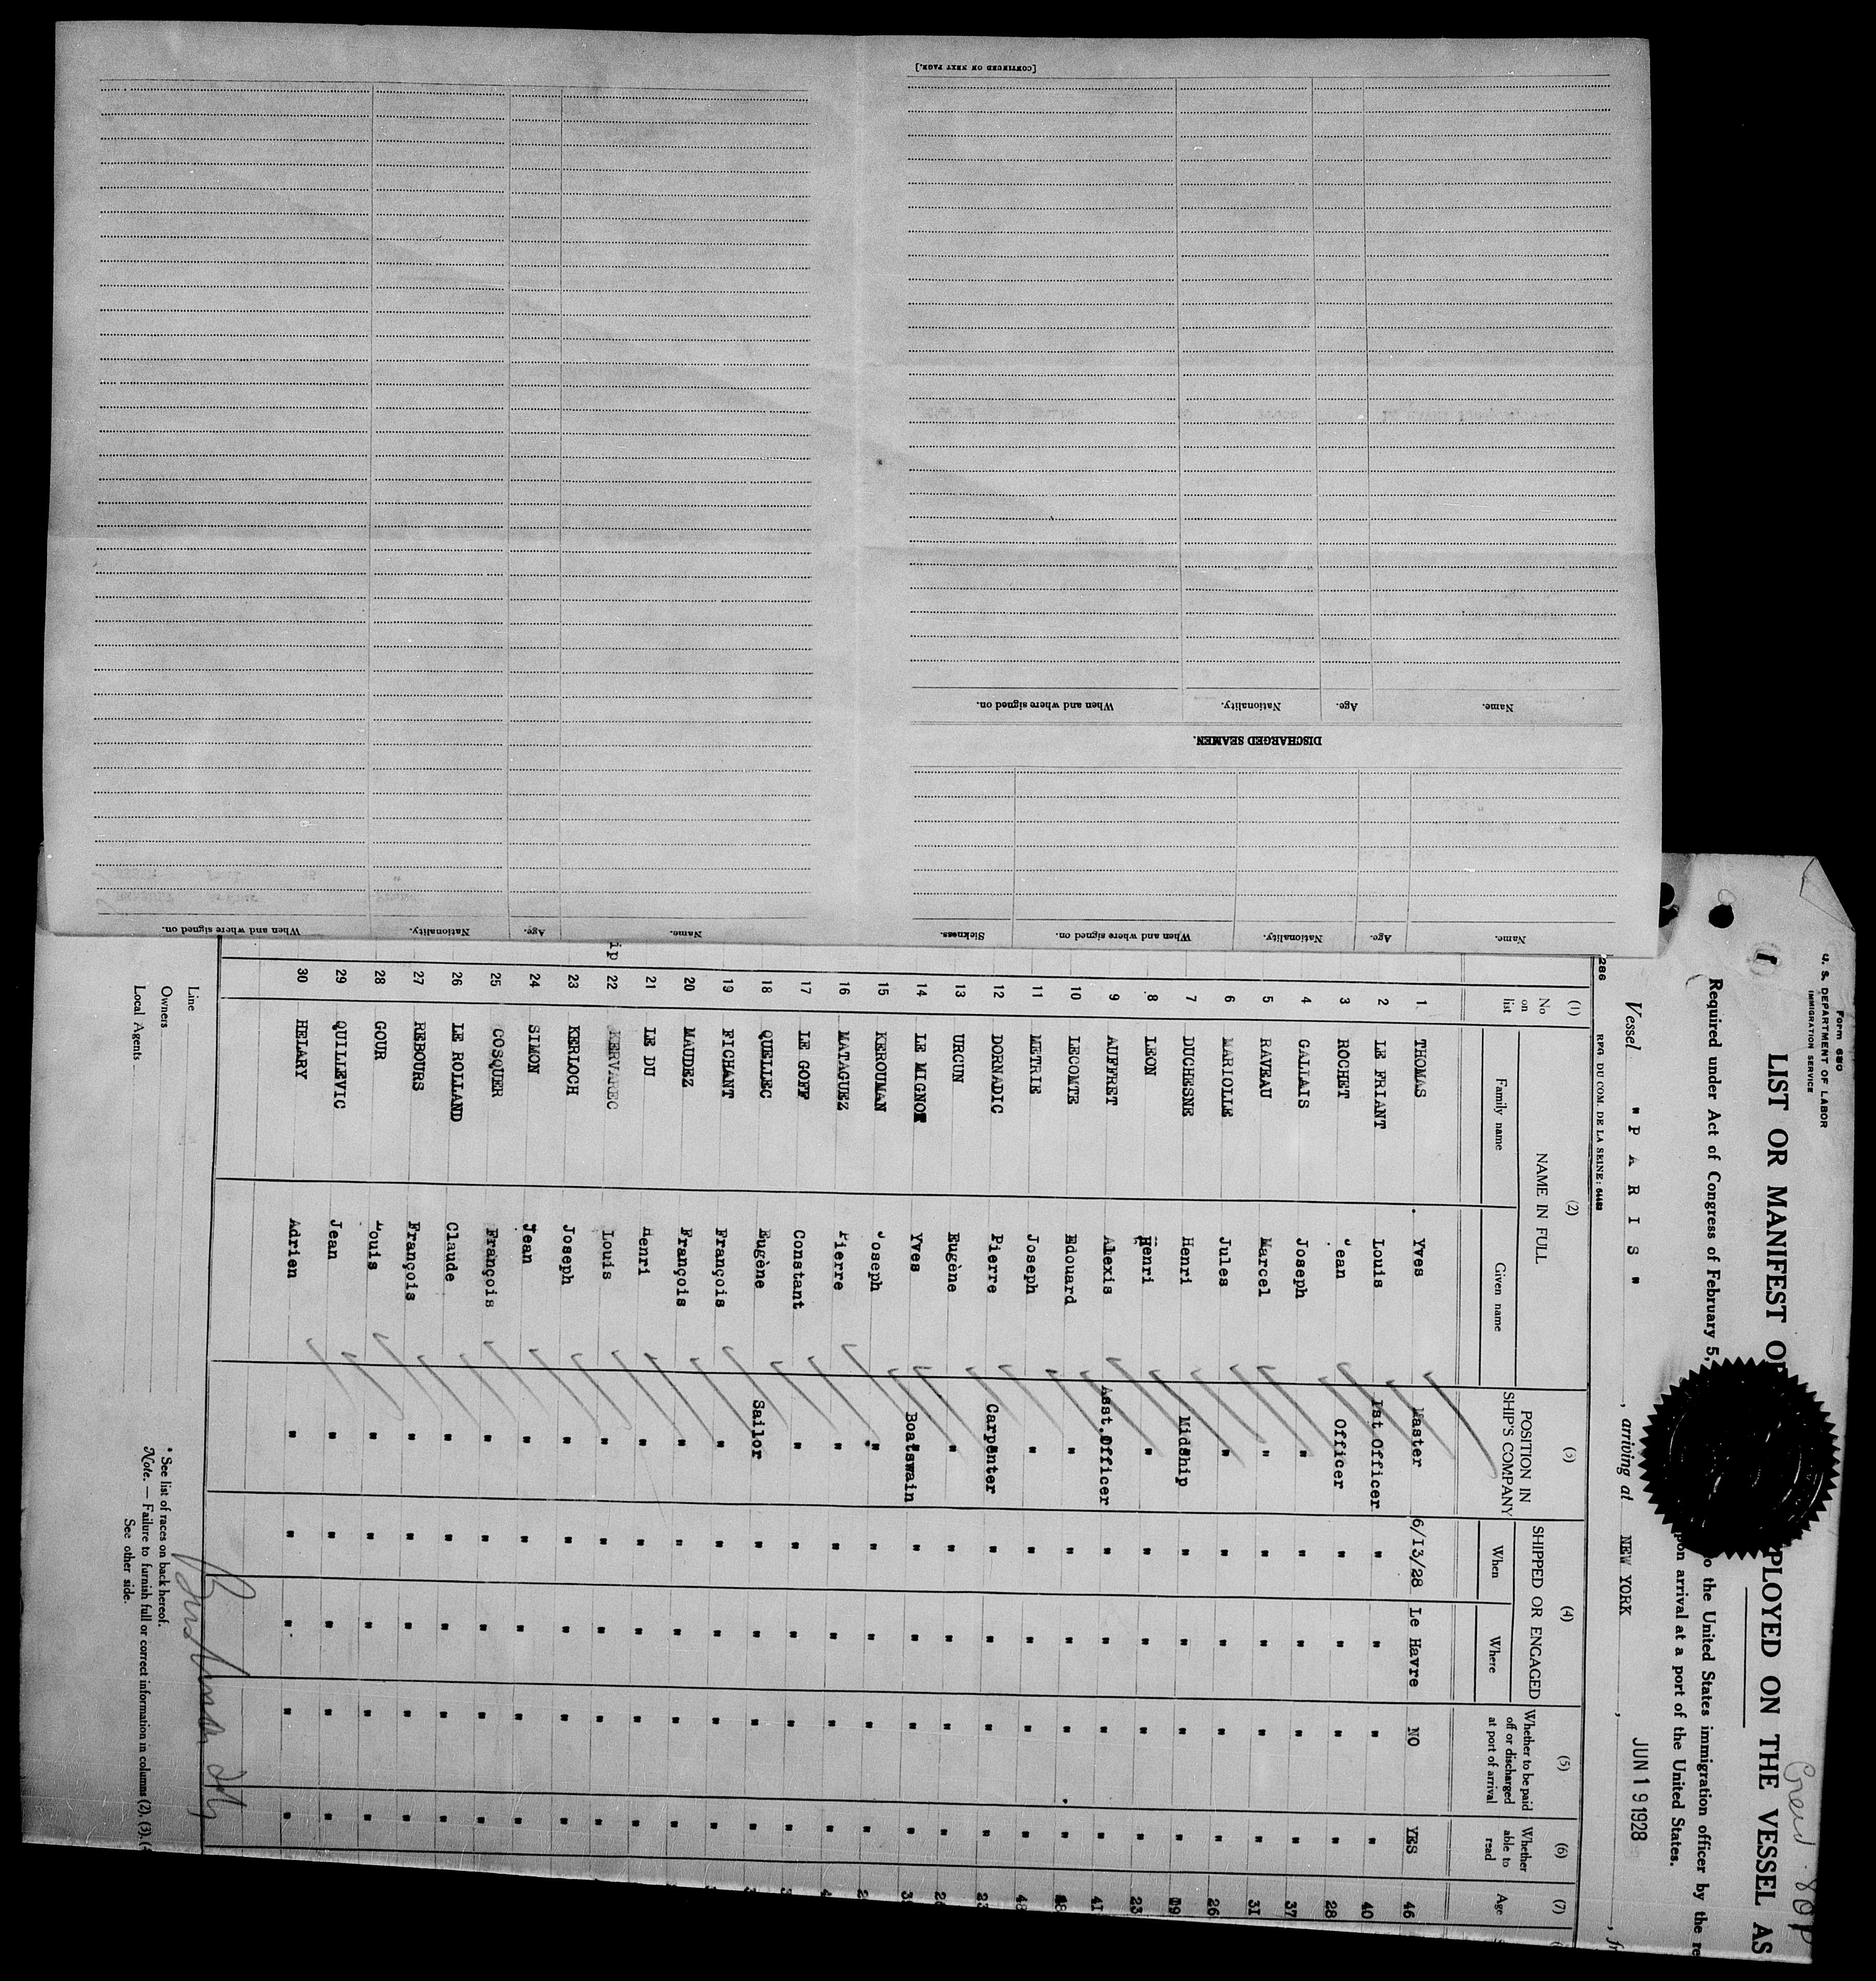 [CONTINUED ON NEXT PAGE.]
When and where signed on.
Nationality.
Age.
Name.
DISCHARGED SEAMEN.
When and where signed on.
Nationality.
Age.
Name.
Sickness.
When and where signed on.
Nationality.
Age.
Name.
Form 680
U. S. DEPARTMENT OF LABOR
IMMIGRATION SERVICE
LIST OR MANIFEST OF
PLOYED ON THE VESSEL AS
Required under Act of Congress of February 5,
to the United States immigration officer by the re
pon arrival at a port of the United States.
Vessel "PARIS", arriving at NEW YORK, JUN 19 1928, fr
286 RPG. DU COM. DE LA SEINE:
(1) (2) (3) (4) (5) (6) (7)
No on list
NAME IN FULL
Family name Given name
POSITION IN SHIP'S COMPANY
SHIPPED OR ENGAGED
When Where
Whether to be paid off or discharged at port of arrival
Whether able to read
Age
1 THOMAS Yves Master 6/13/28 Le Havre NO YES 46
2 LE FRIANT Louis 1st Officer " " " " 40
3 ROCHET Jean Officer " " " " 28
4 GALLAIS Joseph " " " " " 37
5 RAVEAU Marcel " " " " " 31
6 MARIOLLE Jules " " " " " 26
7 DUCHESNE Henri Midship " " " " 19
8 LEON Henri " " " " " 23
9 AUFFRET Alexis Asst. Officer " " " " 41
10 LECOMTE Edouard " " " " " 48
11 METRIE Joseph " " " " " 48
12 DORNADIC Pierre Carpenter " " " "
13 URCUN Eugène " " " " "
14 LE MIGNOT Yves Boatswain " " " "
15 KEROUMAN Joseph " " " " "
16 MATAGUEZ Pierre " " " " "
17 LE GOFF Constant " " " " "
18 QUELLEC Eugène Sailor " " " "
19 FICHANT François " " " " "
20 MAUDEZ François " " " " "
21 LE DU Henri " " " " "
ip 22 KERVAREC Louis " " " " "
23 KERLOCH Joseph " " " " "
24 SIMON Jean " " " " "
25 COSQUER François " " " " "
26 LE ROLLAND Claude " " " " "
27 REBOURS François " " " " "
28 GOUR Louis " " " " "
29 QUILLEVIC Jean " " " " "
30 HELARY Adrien " " " " "
Line
Owners
Local Agents
* See list of races on back hereof.
Note. — Failure to furnish full or correct information in columns (2), (3), (
See other side.